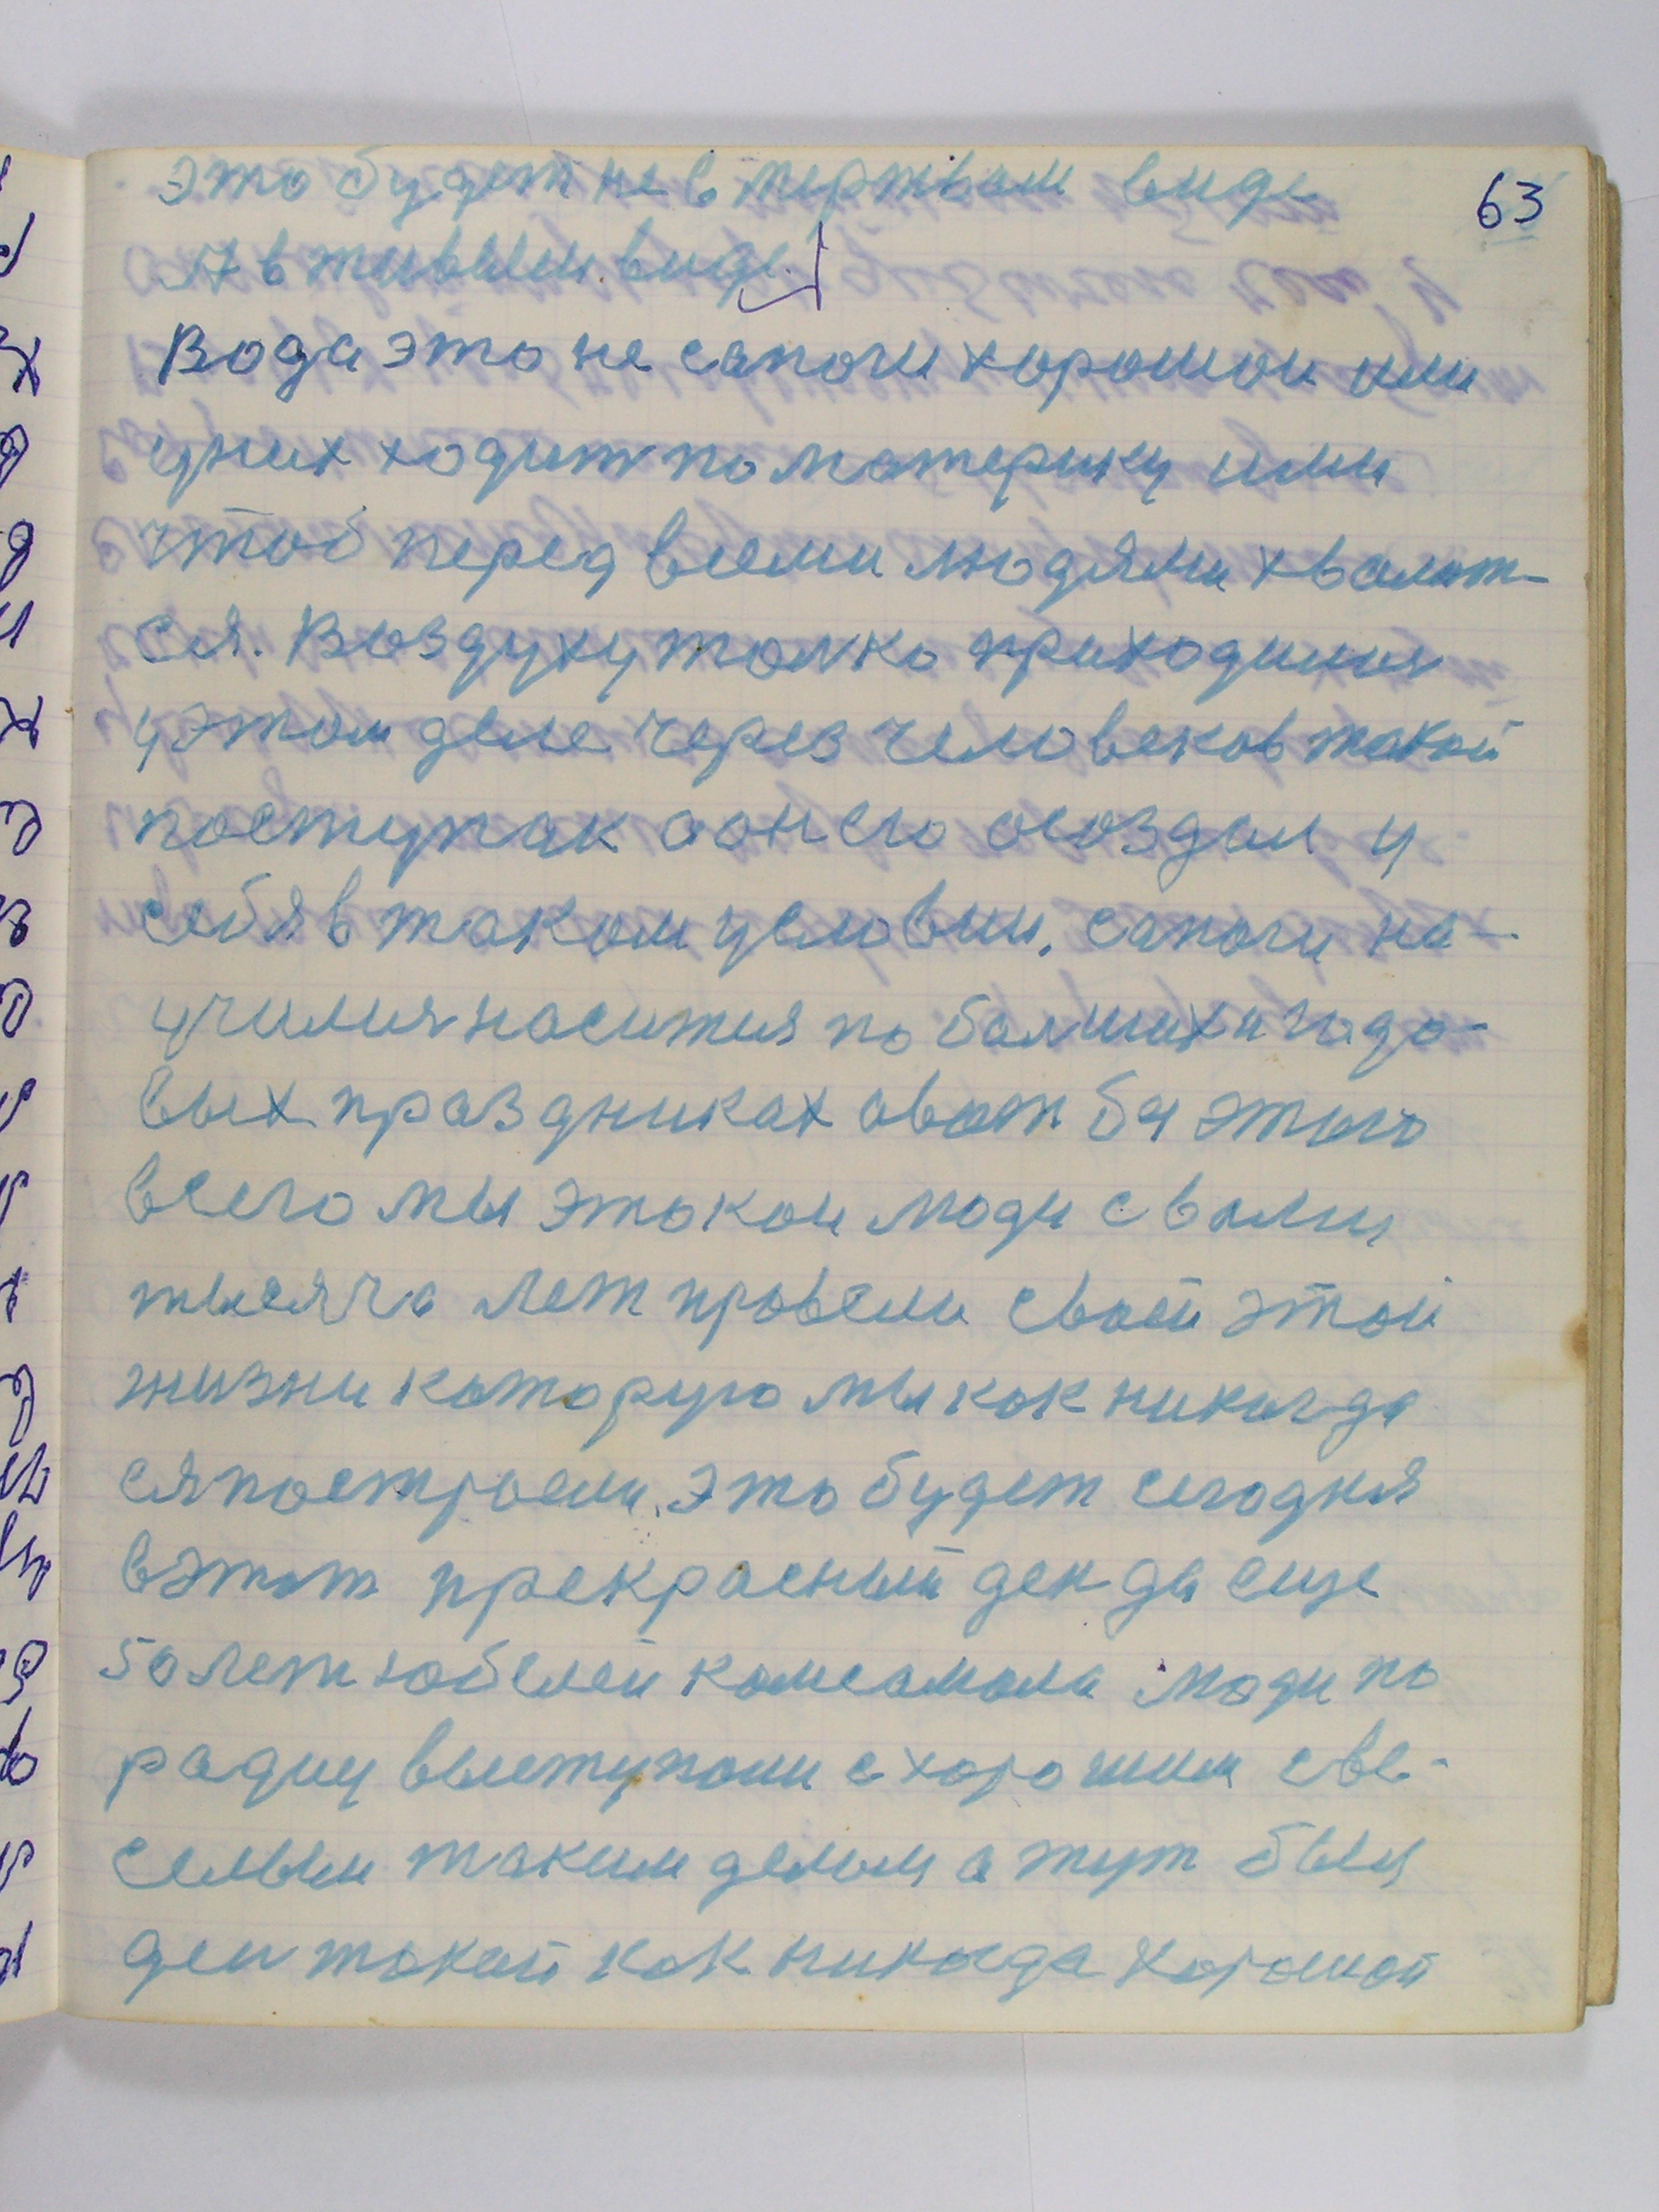 63
это будет не в мертвом виде
А в живым виде
Вода это не сапоги хорошои или
у них ходит по материку или
чтоб перед всеми людями хвалит-
ся. Воздуху толко приходилия
у этом деле через человеков такой
поступак а он его осоздал у
себя в таком условии. сапоги на-
училия насития по балших и годо-
вых праздниках а вот бы этого
всего мы этакои люди с вами
тысяча лет провели своей этой
жизни которую мы как никогда
ся построели. Это будет сегодня
в этот прекрасный ден да еще
50 лет юбелей комсамола люди по
радиу выступали с хорошим с ве-
селым таким делом а тут был
ден такей как никогда хорошой